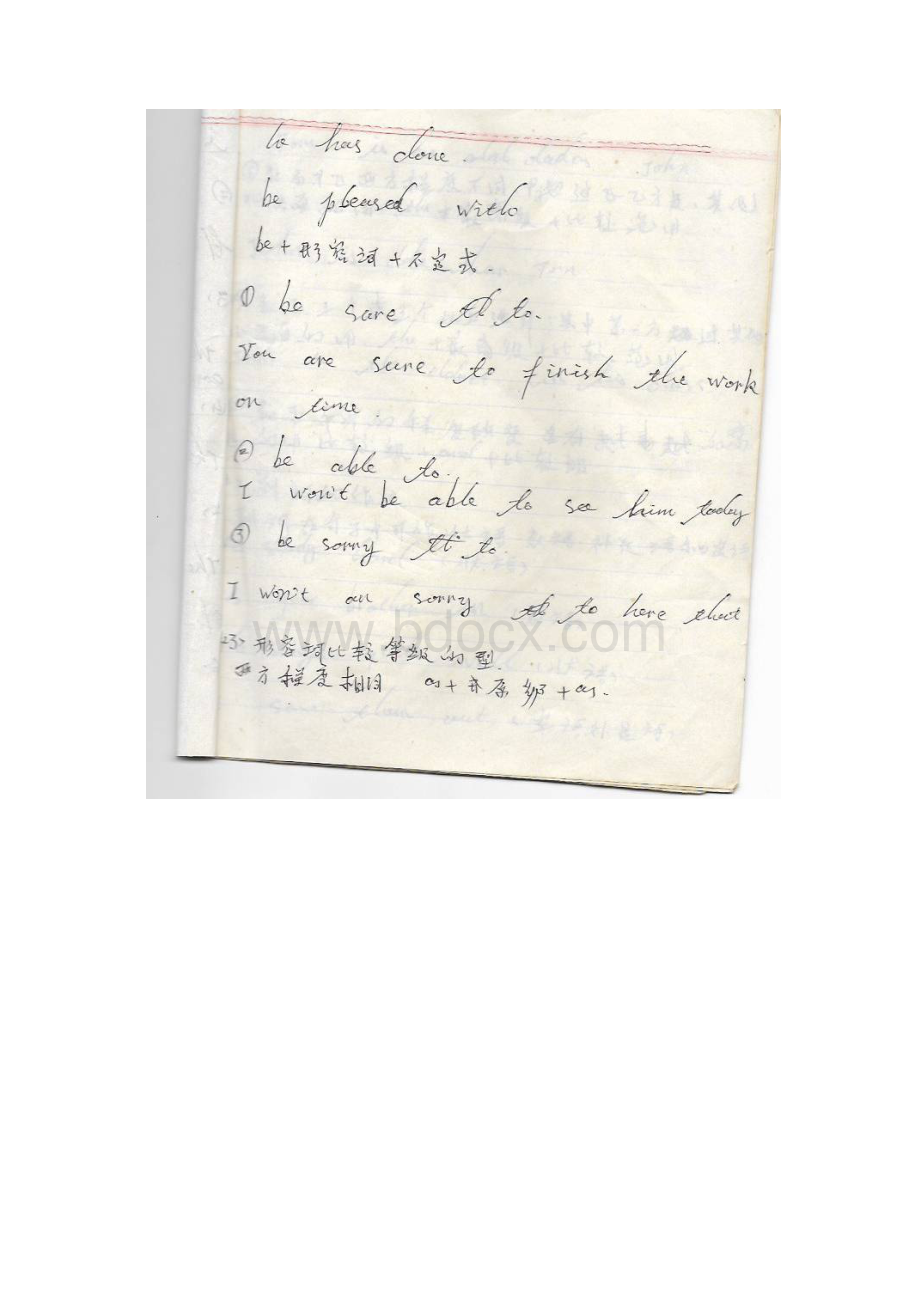 to has done.
be pleased with
be+形容词+不定式.
① be sure to.
You are sure to finish the work
on time.
② be able to.
I won't be able to see him today
③ be sorry to.
I won't an sorry to here that
www.bdocx.com
<3>形容词比较等级的型.
双方程度相同 as+ 原级+as.